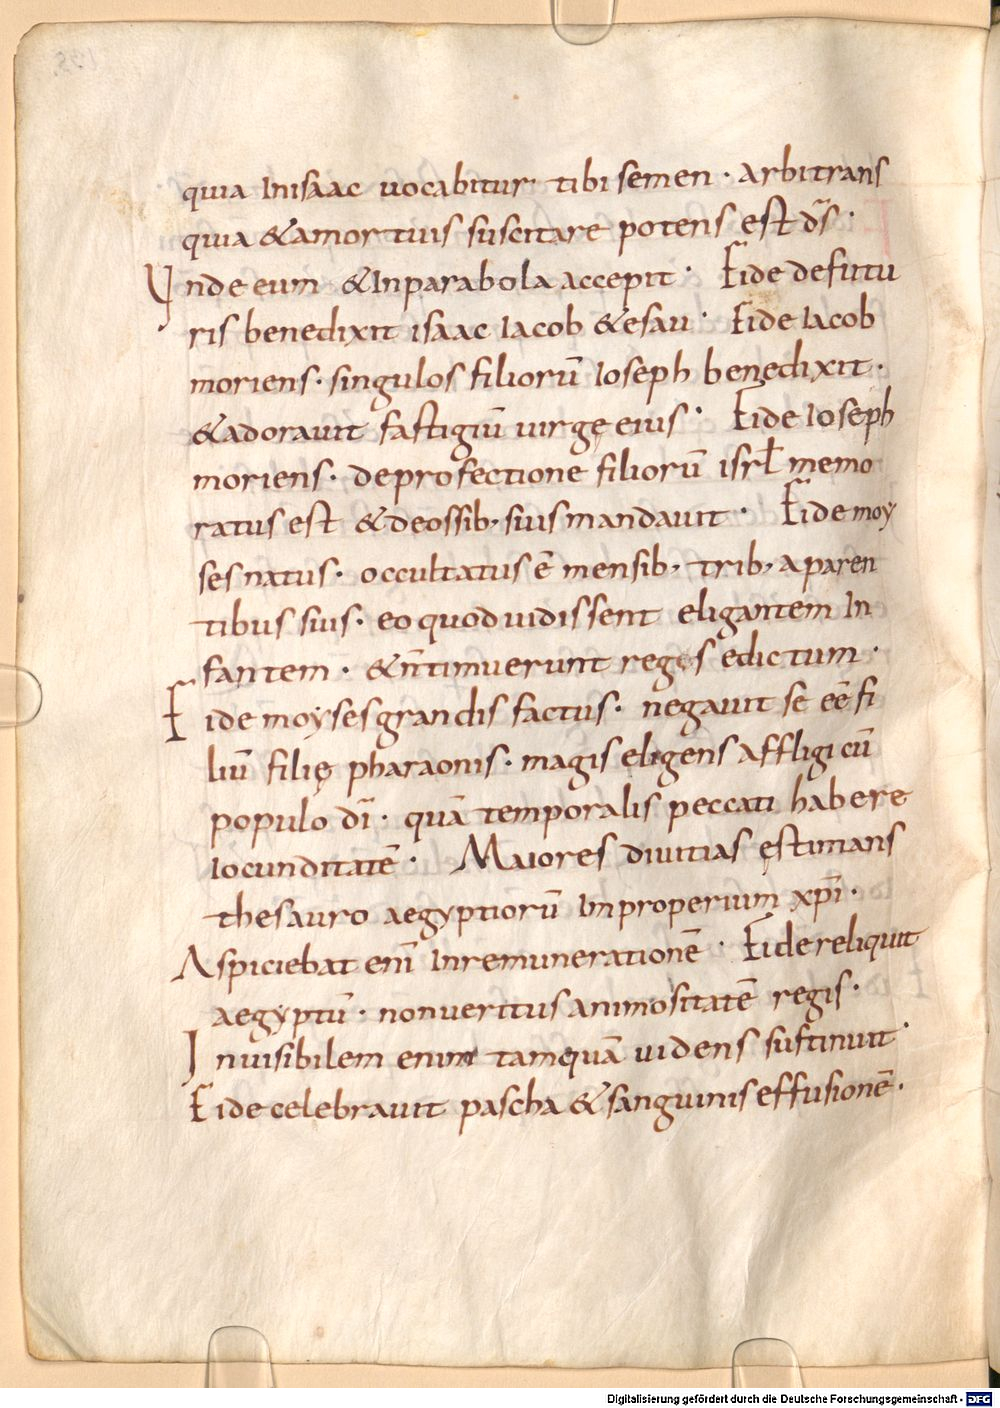 quia Inisaac uocabitur tibi semen · Arbitrans
quia &amortuis suscitare potens est d̄s ·
Unde eum &Inparabola accepit · Fide defutu
ris benedixit isaac Iacob &esau · Fide Iacob
moriens · singulos filiorū Ioseph benedixit ·
&adorauit fastigiū uirgę eius · Fide Ioseph
moriens · deprofectione filiorū isrƚ memo
ratus est &deossib, suis mandauit · Fide moy
ses natus · occultatus ē mensib, trib, aparen
tibus suis · eo quod uidissent eligantem In
fantem · &n̄timuerunt regis edictum ·
Fide moyses grandis factus · negauit se eē fi
liū filię pharaonis · magis eligens affligi cū
populo dī · quā temporalis peccati habere
Iocunditatē · Maiores diuitias ęstimans
thesauro aegyptiorū Improperium xp̄i ·
Aspiciebat enī Inremunerationē · Fide reliquit
aegyptū · non ueritus animositatē regis ·
Inuisibilem enim tamquā uidens sustinuit ·
Fide celebrauit pascha &sanguinis effusionē ·
Digitalisierung gefördert durch die Deutsche Forschungsgemeinschaft - DFG